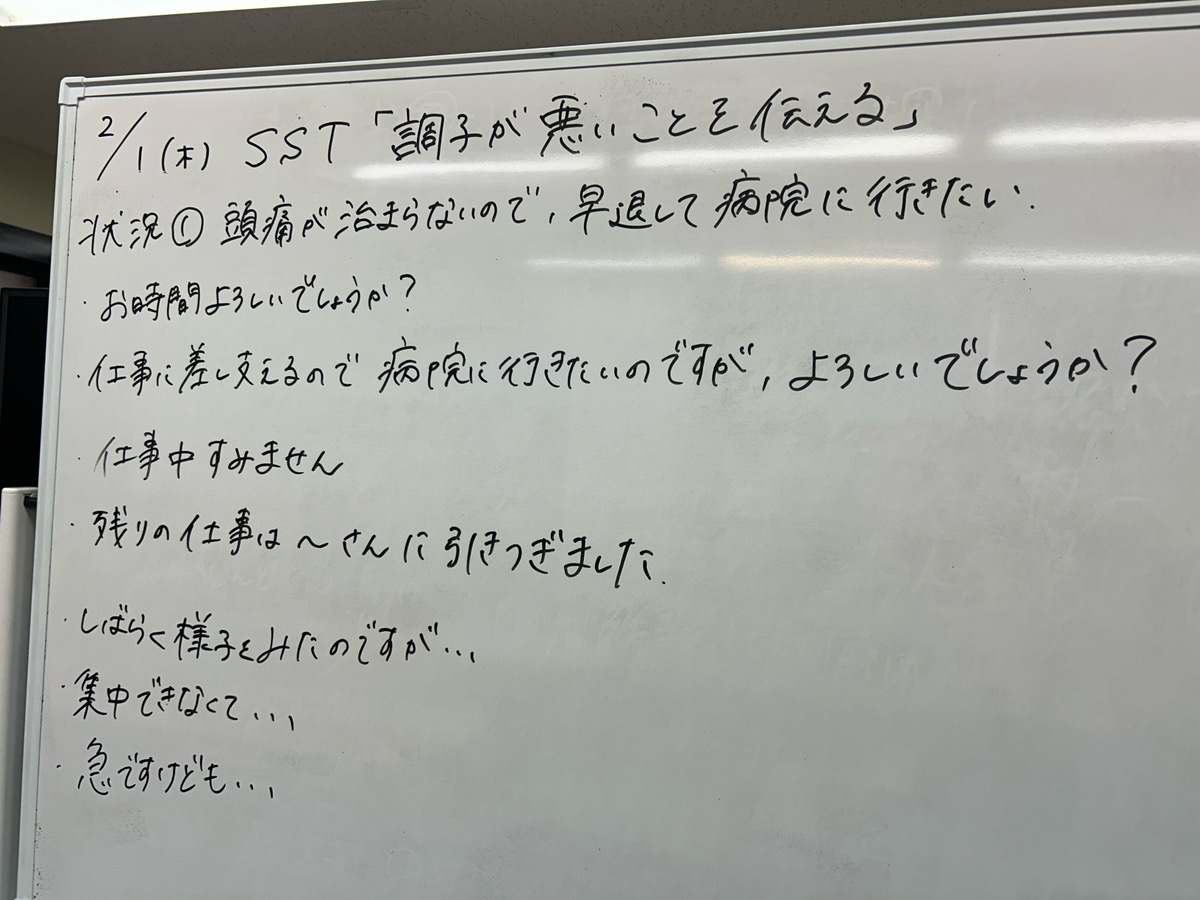 2/1(木) SST「調子が悪いことを伝える」
状況① 頭痛が治まらないので、早退して病院に行きたい.
・お時間よろしいでしょうか?
・仕事に差し支えるので病院に行きたいのですが、よろしいでしょうか?
・仕事中すみません
・残りの仕事は〜さんに引きつぎました.
・しばらく様子をみたのですが...
・集中できなくて...
・急ですけども...